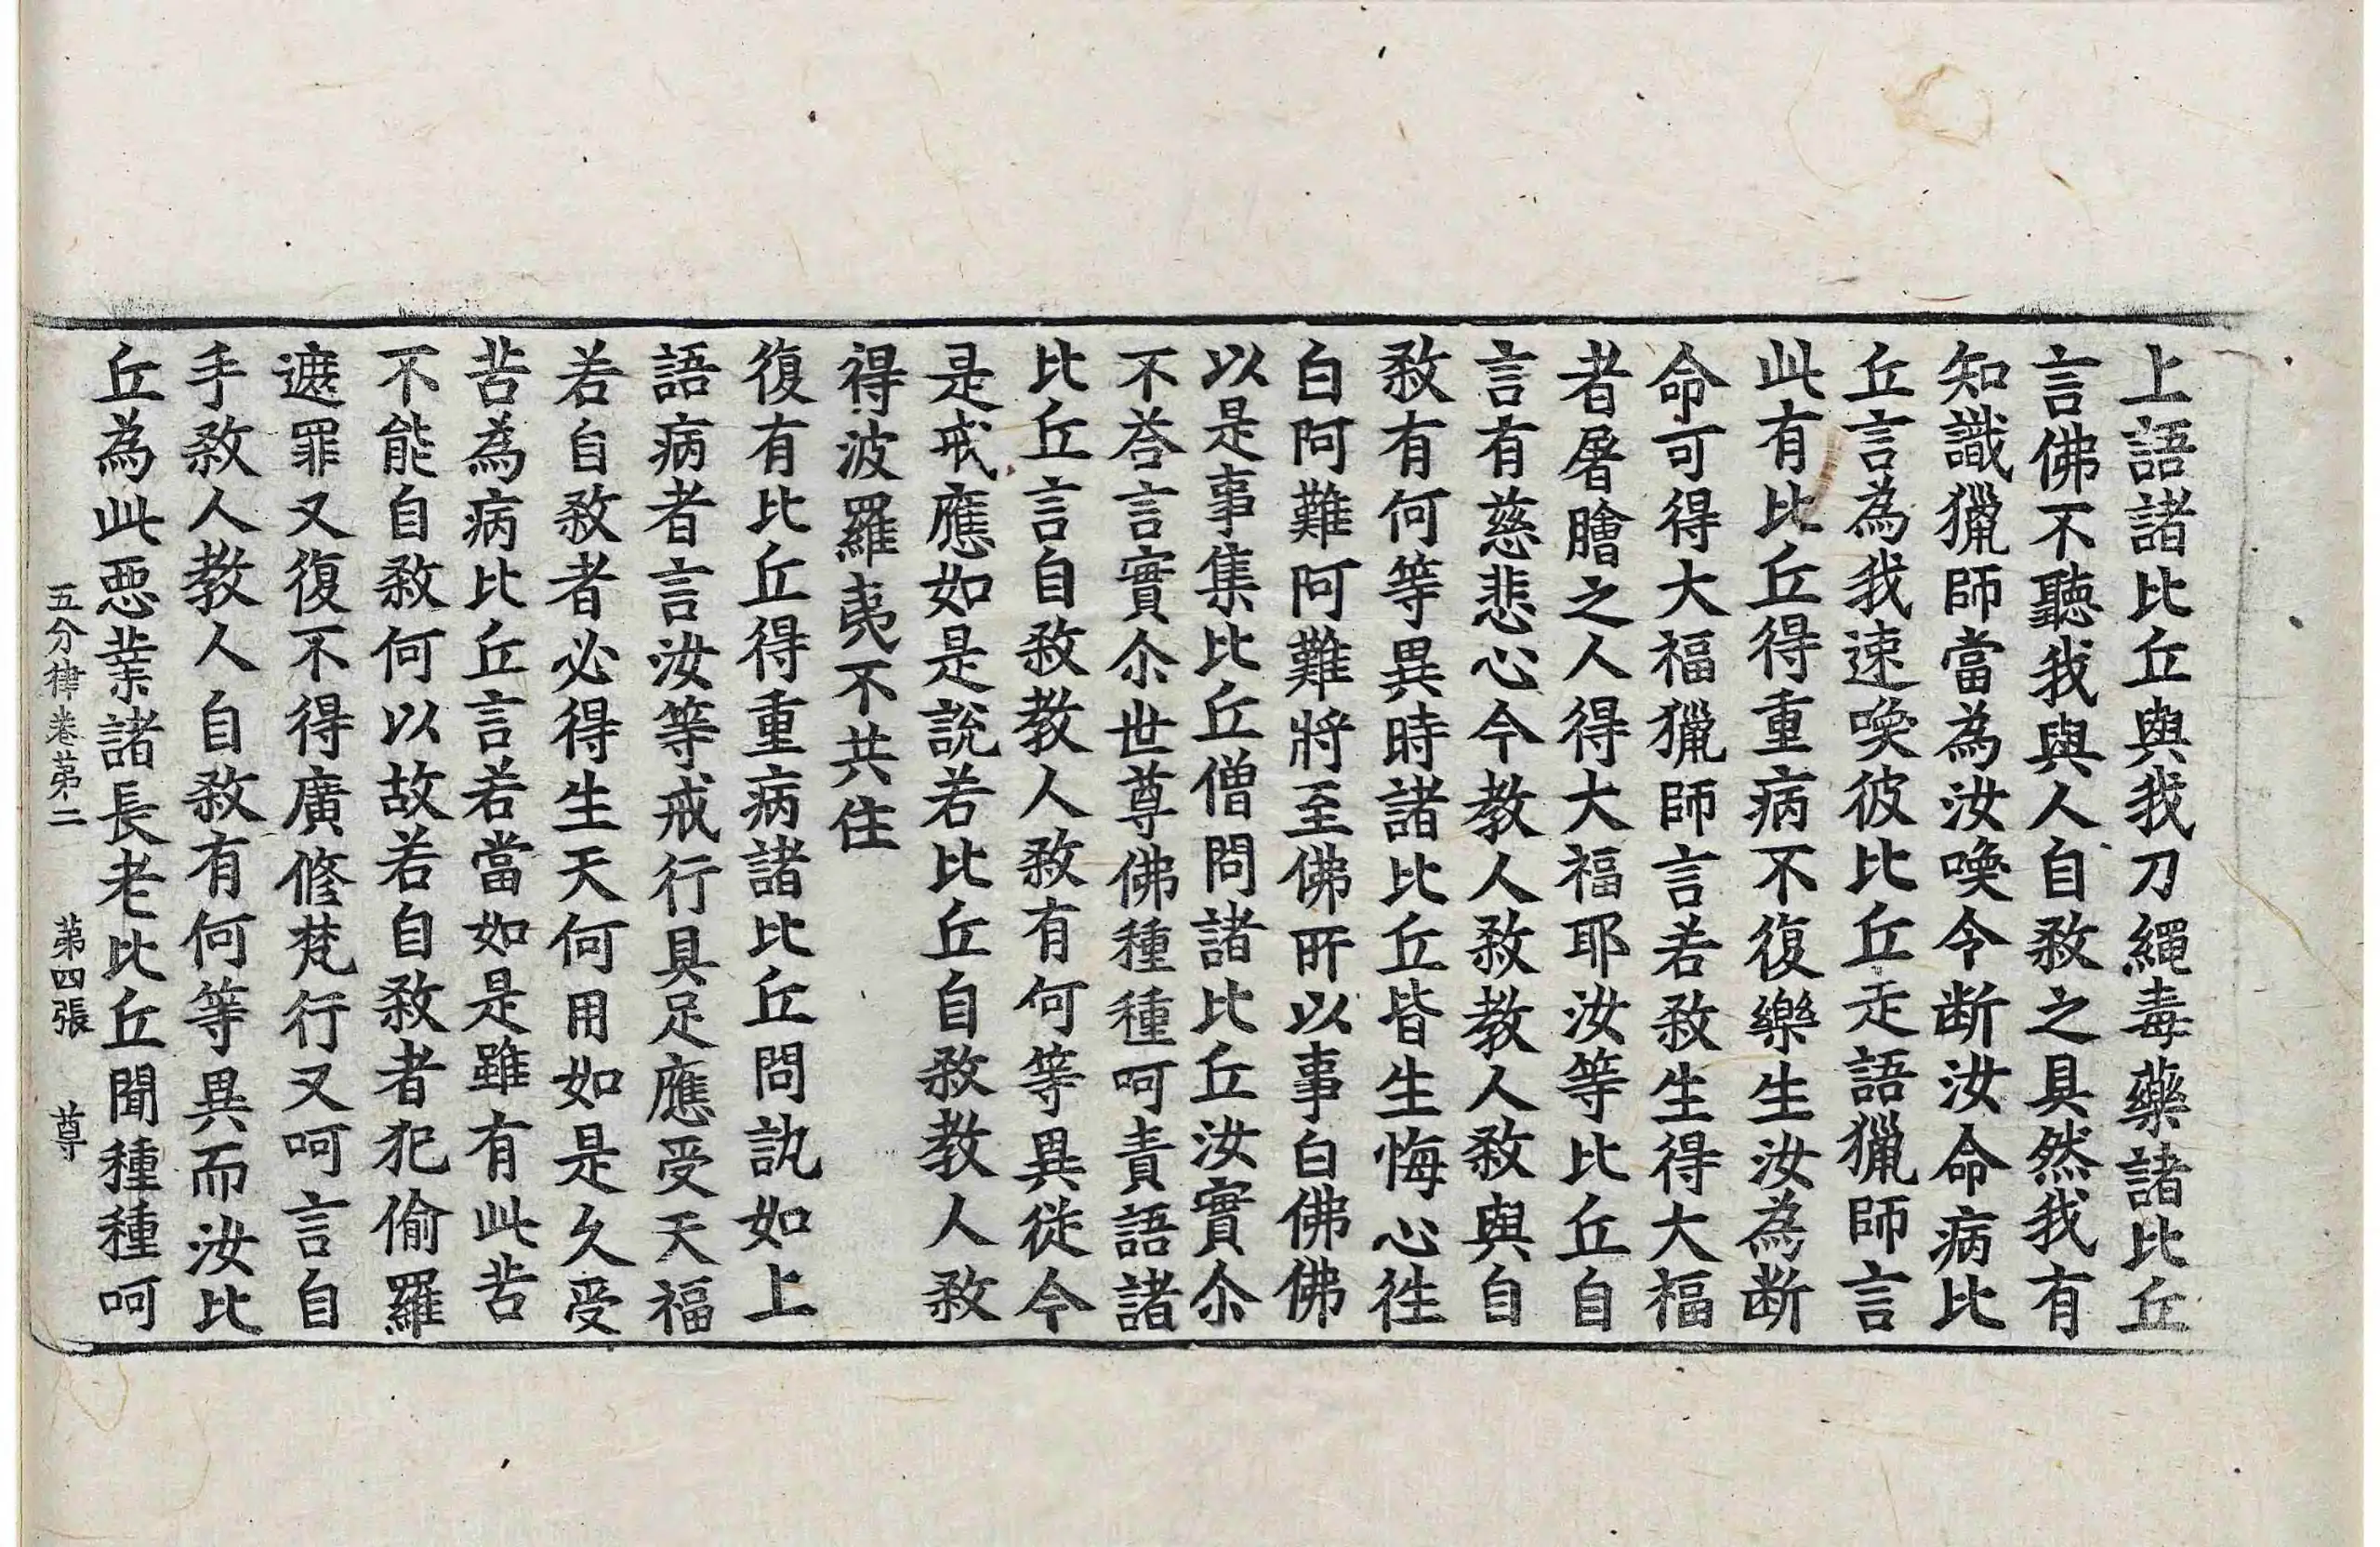 上語諸比丘與我刀繩毒藥諸比丘
言佛不聽我與人自敎之具然我有
知識獵師當為汝喚令断汝命病比
丘言為我速喚彼比丘走語獵師言
此有比丘得重病不復樂生汝為断
命可得大福獵師言若敎生得大福
者屠膾之人得大福耶汝等比丘自
言有慈悲心今教人敎教人敎與自
敎有何等異時諸比丘皆生悔心徃
白阿難阿難將至佛所以事白佛佛
以是事集比丘僧問諸比丘汝實尒
不荅言實尒世尊佛種種呵責語諸
比丘言自敎教人敎有何等異從今
是戒應如是說若比丘自敎教人敎
得波羅夷不共住
復有比丘得重病諸比丘問訊如上
語病者言汝等戒行具足應受天福
若自敎者必得生天何用如是久受
苦為病比丘言若當如是雖有此苦
不能自敎何以故若自敎者犯偷羅
遮罪又復不得廣修梵行又呵言自
手敎人教人自敎有何等異而汝比
丘為此惡業諸長老比丘聞種種呵
五分律卷第二　第四張　尊